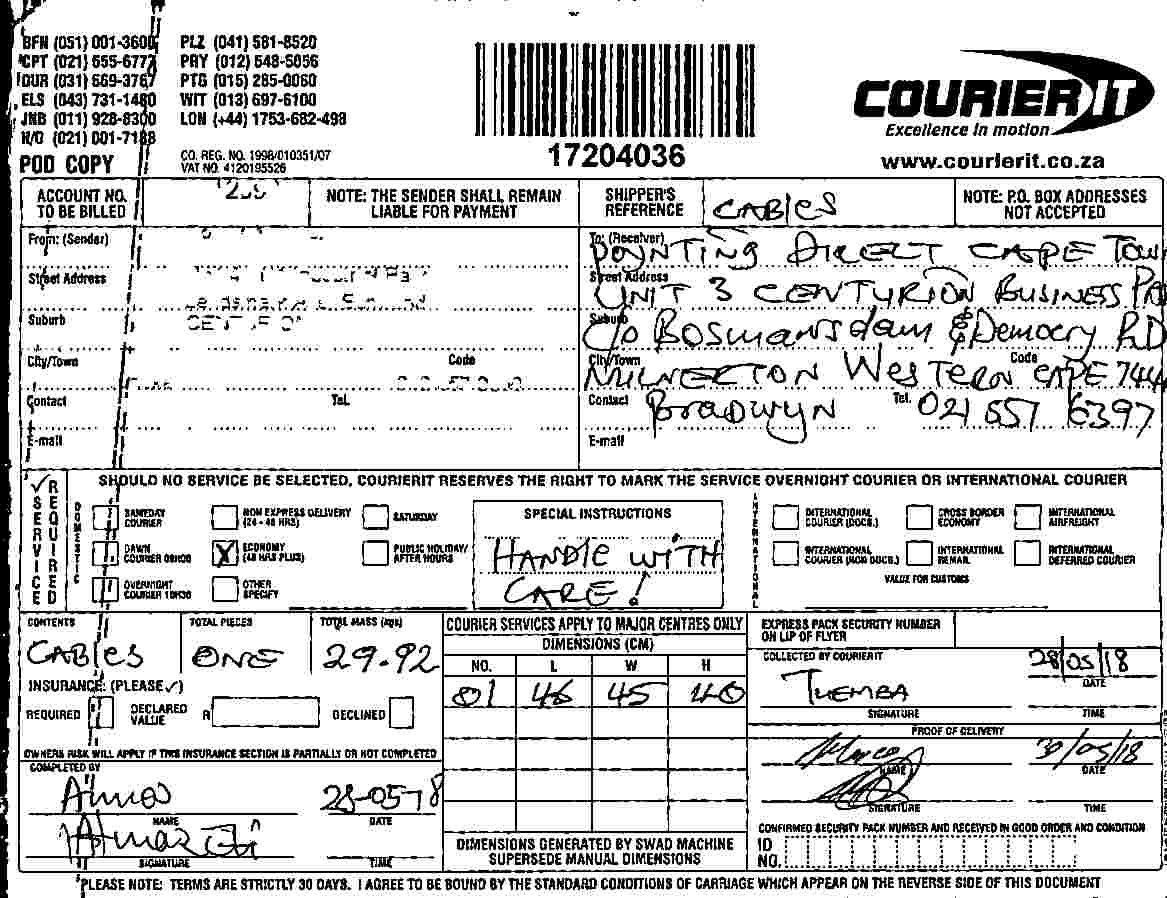 BFN (051) 001-3600 PLZ (041) 581-8520
CPT (021) 555-6777 PRY (012) 548-5056
DUR (031) 569-3767 PTG (015) 285-0060
ELS (043) 731-1480 WIT (013) 697-6100
JNB (011) 928-8300 LON (+44) 1753-682-498
H/O (021) 001-7188
POD COPY
CO. REG. NO. 1998/010351/07
VAT NO. 4120195526
17204036
COURIER IT
Excellence in motion
www.courierit.co.za
ACCOUNT NO. TO BE BILLED
NOTE: THE SENDER SHALL REMAIN LIABLE FOR PAYMENT
SHIPPER'S REFERENCE CABLES
NOTE: P.O. BOX ADDRESSES NOT ACCEPTED
From: (Sender)
Street Address
Suburb
City/Town Code
Contact Tel.
E-mail
To: (Receiver) POYNTING DIRECT CAPE TOWN
Street Address UNIT 3 CENTURION BUSINESS
Suburb C/O BOSMANSDAM & DEMOCRY RD
City/Town MILNERTON WESTERN CAPE Code
Contact BRADWYN Tel. 021 557 6397
E-mail
SERVICE REQUIRED
SHOULD NO SERVICE BE SELECTED, COURIERIT RESERVES THE RIGHT TO MARK THE SERVICE OVERNIGHT COURIER OR INTERNATIONAL COURIER
DOMESTIC
SAMEDAY COURIER
NON EXPRESS DELIVERY (24 - 48 HRS)
SATURDAY
DAWN COURIER 09H00
X ECONOMY (48 HRS PLUS)
PUBLIC HOLIDAY/ AFTER HOURS
OVERNIGHT COURIER 10H30
OTHER SPECIFY
SPECIAL INSTRUCTIONS
HANDLE WITH
CARE!
INTERNATIONAL
INTERNATIONAL COURIER (DOCS.)
CROSS BORDER ECONOMY
INTERNATIONAL AIRFREIGHT
INTERNATIONAL COURIER (NON DOCS.)
INTERNATIONAL REMAIL
INTERNATIONAL DEFERRED COURIER
VALUE FOR CUSTOMS
CONTENTS CABLES
TOTAL PIECES ONE
TOTAL MASS (kgs) 29.92
INSURANCE: (PLEASE ✓)
REQUIRED DECLARED VALUE R DECLINED
OWNERS RISK WILL APPLY IF THIS INSURANCE SECTION IS PARTIALLY OR NOT COMPLETED
COURIER SERVICES APPLY TO MAJOR CENTRES ONLY
DIMENSIONS (CM)
NO. L W H
01 46 45 40
DIMENSIONS GENERATED BY SWAD MACHINE
SUPERSEDE MANUAL DIMENSIONS
COMPLETED BY
NAME
28-05-18 DATE
SIGNATURE TIME
EXPRESS PACK SECURITY NUMBER ON LIP OF FLYER
COLLECTED BY COURIERIT
THEMBA 28/05/18
SIGNATURE DATE
TIME
PROOF OF DELIVERY
30/05/18
NAME DATE
SIGNATURE TIME
CONFIRMED SECURITY PACK NUMBER AND RECEIVED IN GOOD ORDER AND CONDITION
ID NO.
PLEASE NOTE: TERMS ARE STRICTLY 30 DAYS. I AGREE TO BE BOUND BY THE STANDARD CONDITIONS OF CARRIAGE WHICH APPEAR ON THE REVERSE SIDE OF THIS DOCUMENT